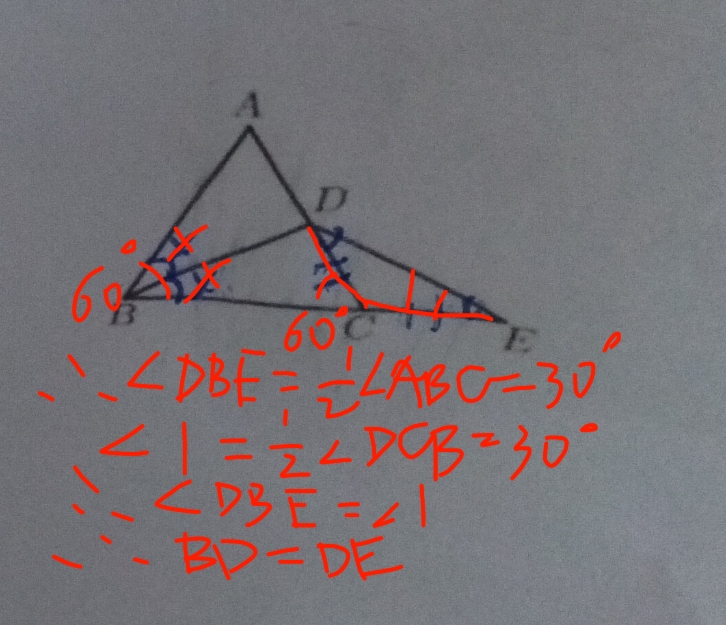 A
D
60°
B
60°
C
E
∵ ∠DBE = 1/2 ∠ABC = 30°
∠1 = 1/2 ∠DCB = 30°
∴ ∠DBE = ∠1
∴ BD = DE